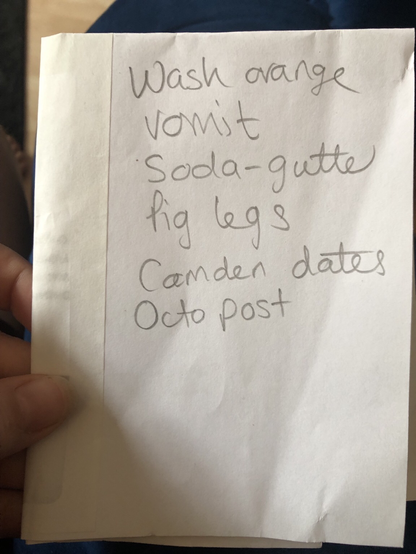 Wash orange
vomit
Soda-gutte
fig legs
Camden dates
Octo post